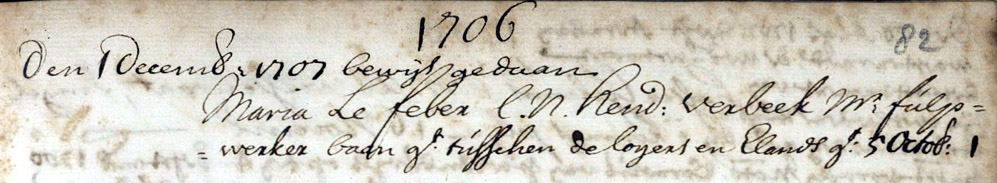 1706
82
Den 1 Decemb: 1707 bewijs gedaan
Maria Le feber C.N. Hend: verbeek Mr: fulp=
= werker baan gt: tusschen de loyers en Elands gt: 5 Octob: 1